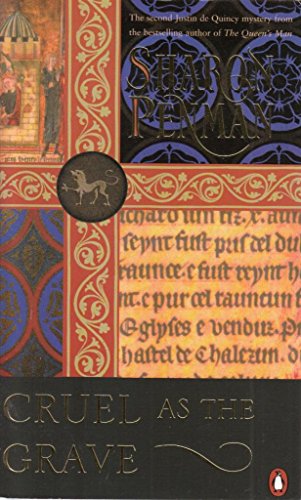 The second Justin de Quincy mystery from
the bestselling author of The Queen's Man
SHARON
PENMAN
seynt fust pris del du
raunce. e fust reynt h
nt. e pur cel rauncun
Eglyses e venduz. p
hastel de Chalezun. d
CRUEL AS THE
GRAVE